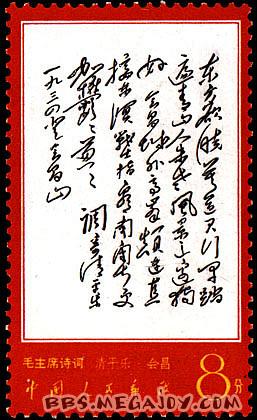 东方欲晓莫道君行早踏
遍青山人未老风景这边独
好会昌城外高峰颠连直
接东溟战士指看南粤更
加郁〻葱〻 调寄清平乐
一九三四 会昌山
毛主席诗词 清平乐·会昌
中国人民邮政 8分
BBS.MEGAJOY.COM